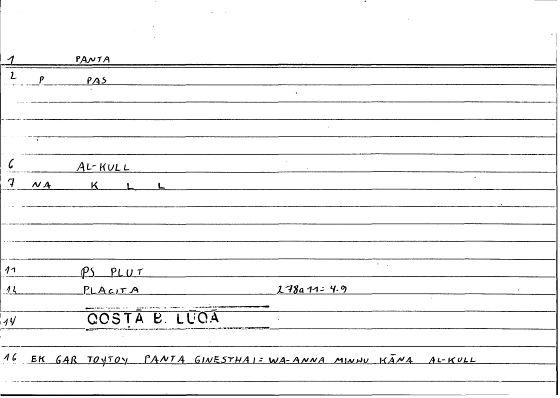 1 PANTA
2 P PAS
6 AL-KULL
7 NA K L L
11 PS PLUT
12 PLACITA 278a11= 4.9
14 QOSTĀ B. LUQA
16 EK GAR TOYTOY PANTA GINESTHAI = WA-ANNA MINHU KĀNA AL-KULL